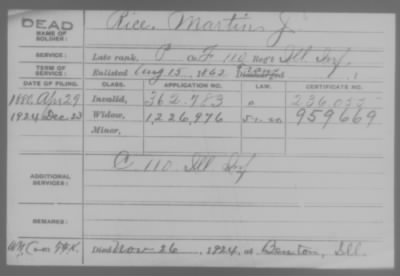 DEAD
NAME OF SOLDIER: Rice, Martin J
SERVICE: Late rank, P Co. F 110 Reg't Ill Inf.
TERM OF SERVICE: Enlisted Aug 15, 1862 Discharged
DATE OF FILING. CLASS. APPLICATION NO. LAW. CERTIFICATE NO.
1880 Apr 29 Invalid, 362.783
1924 Dec 23 Widow, 1,226,976 959669
Minor,
ADDITIONAL SERVICES: C 110 Ill Inf
REMARKS:
Died Nov 26, 1924, at Benton, Ill.